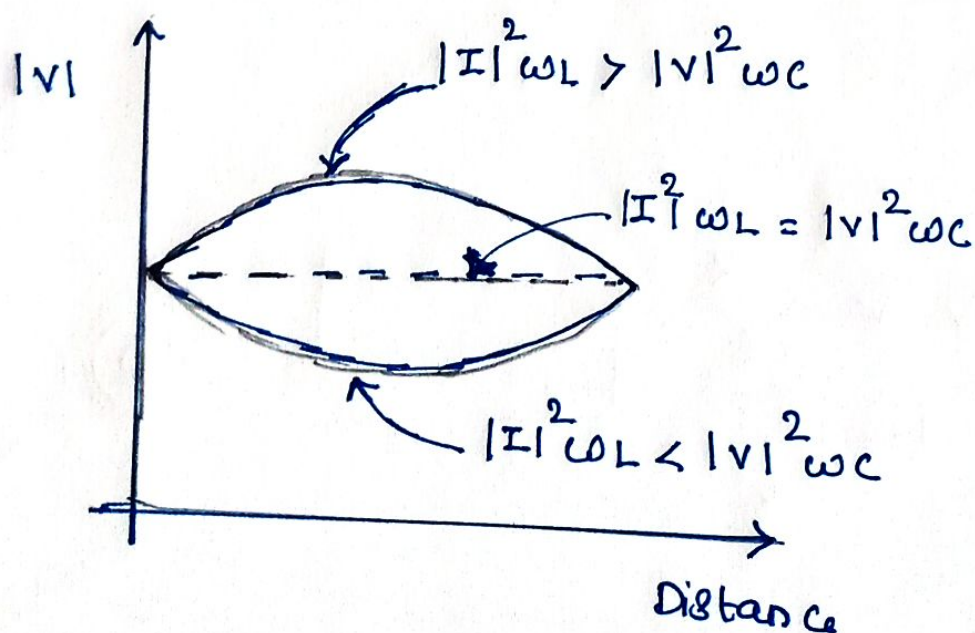 |V|
|I|²ωL > |V|²ωC
|I|²ωL = |V|²ωC
|I|²ωL < |V|²ωC
Distance